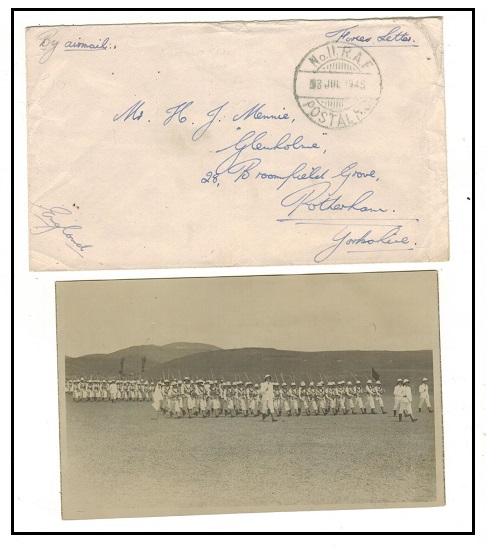 By airmail.
Forces Letter.
No. 11. R.A.F
JUL 1945
POSTAL
Mr. H. J. Mennie,
"Glenholme",
28, Broomfield Grove,
Rotherham.
Yorkshire.
England